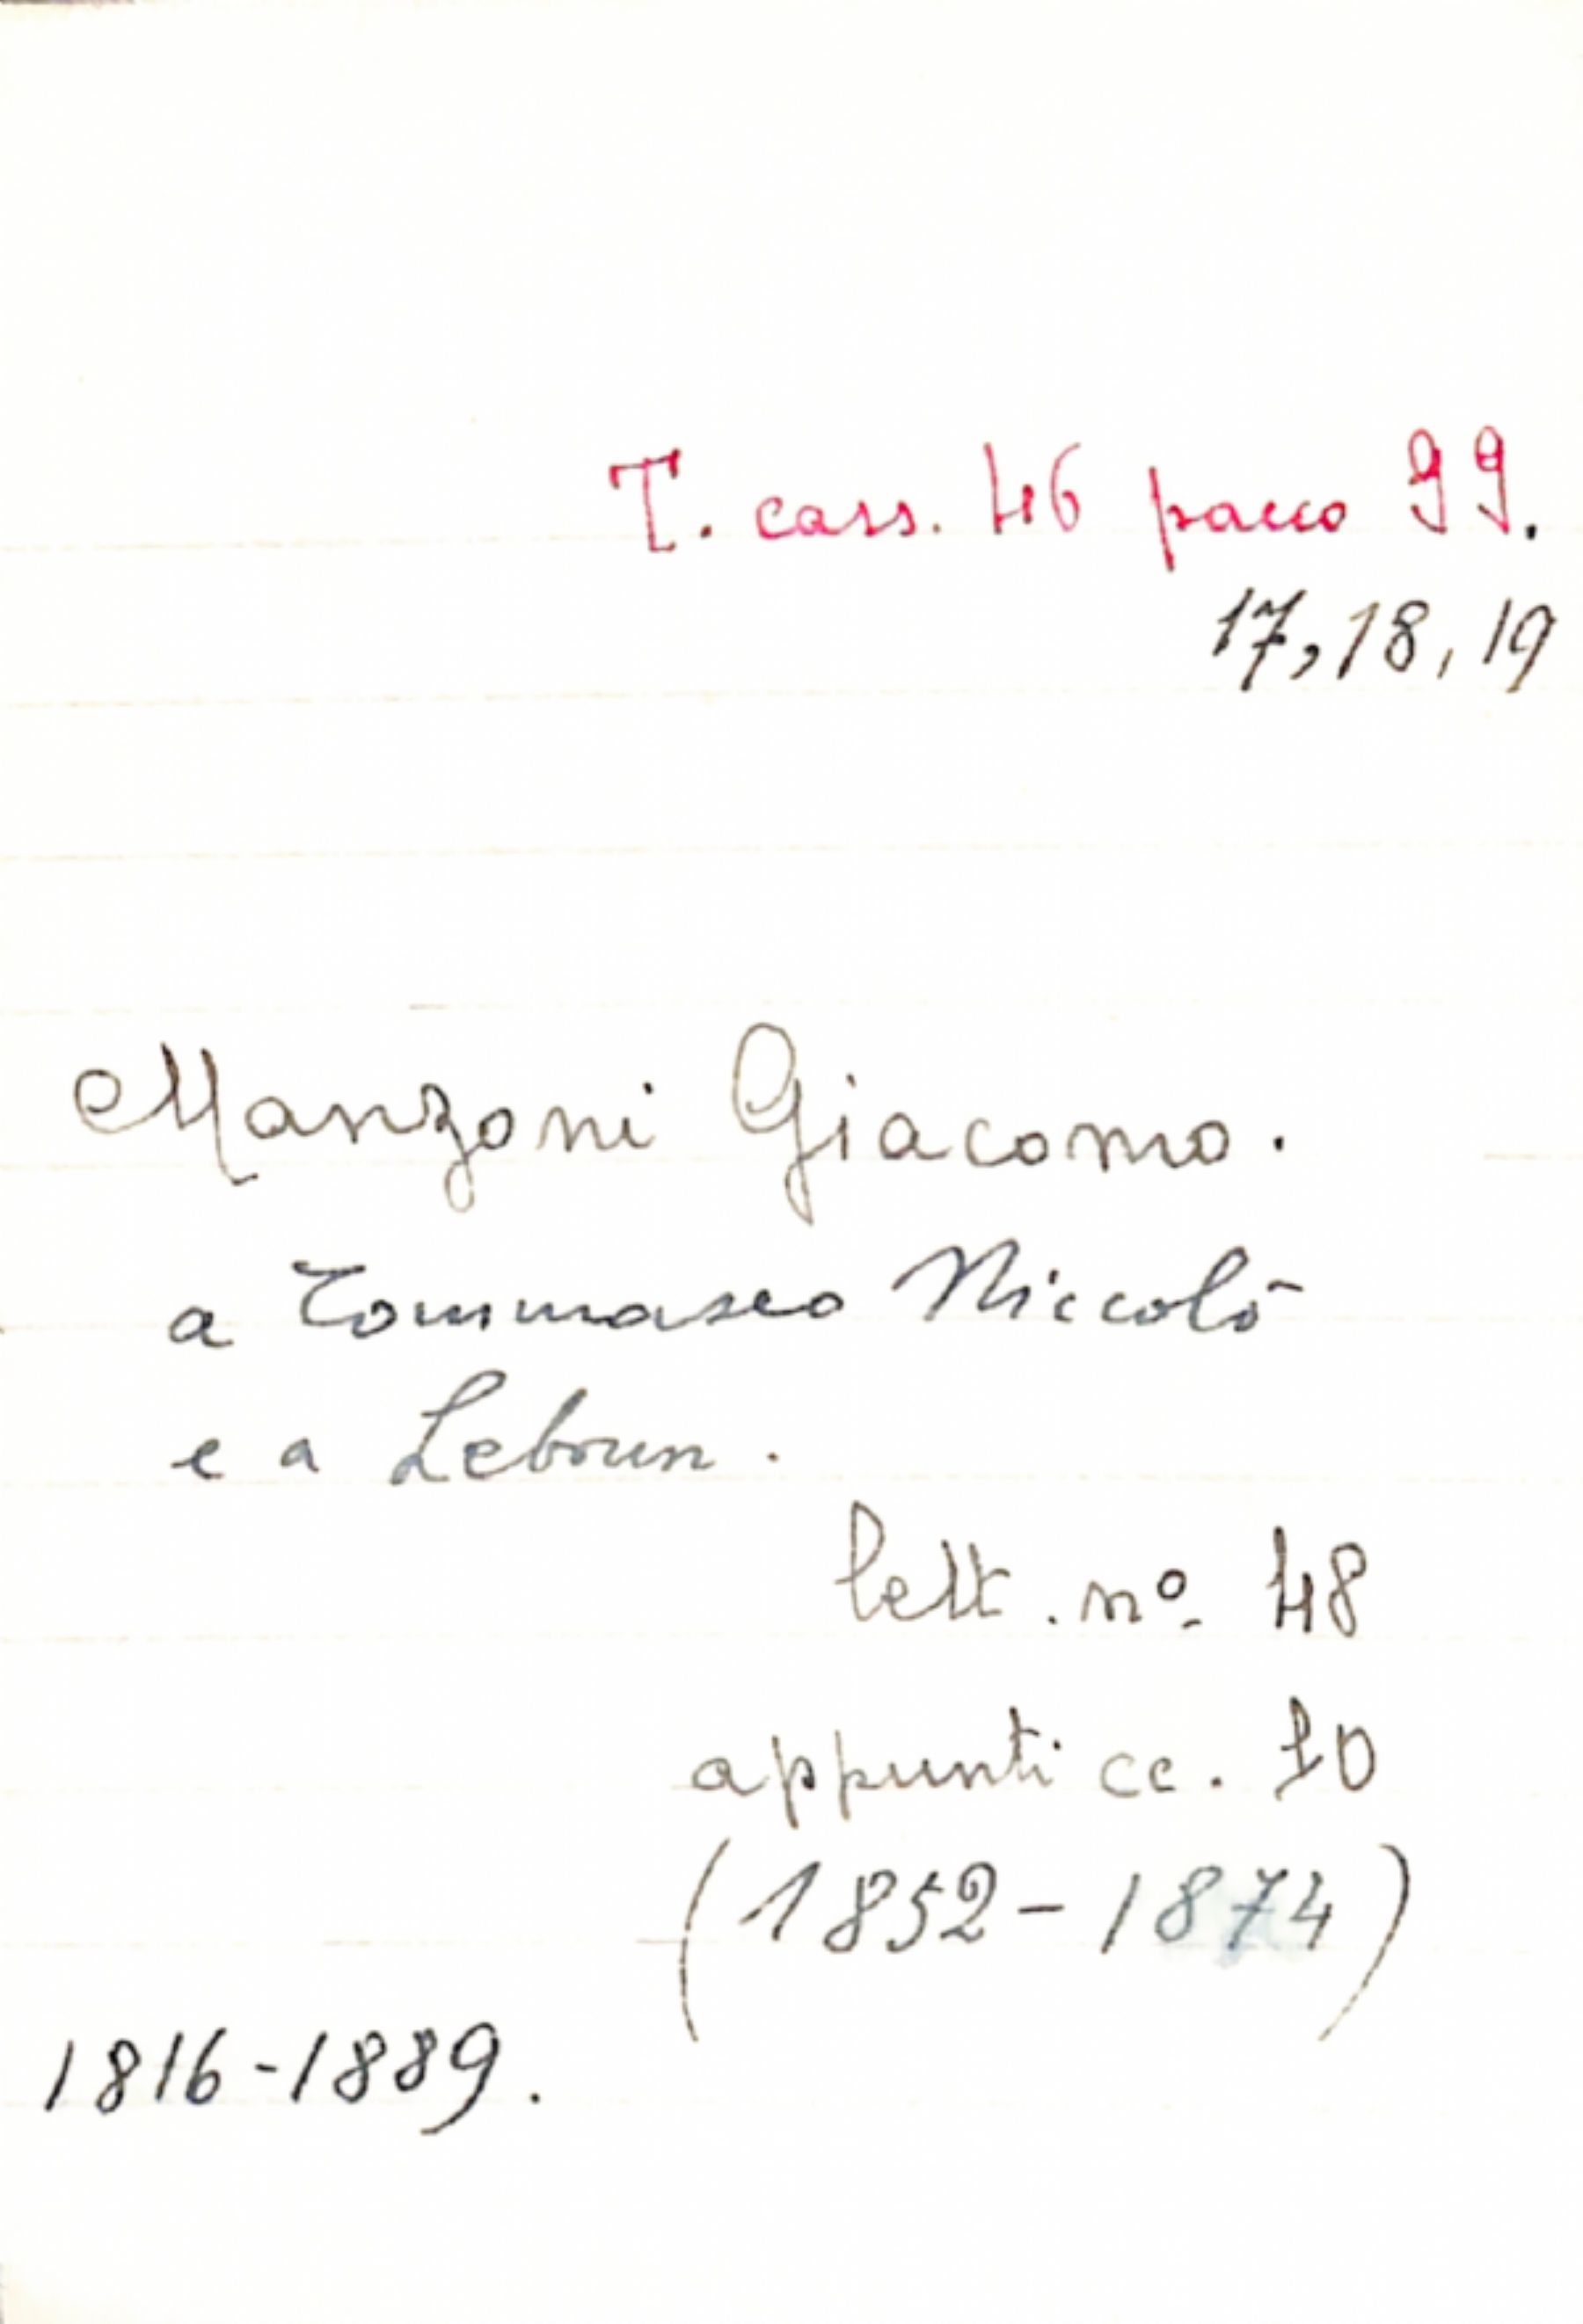 T. cass. 46 pacco 99.
17, 18, 19
Manzoni Giacomo.
a Tommaseo Niccolò
e a Lebrun.
lett. nº 48
appunti cc. 10
(1852-1874)
1816-1889.